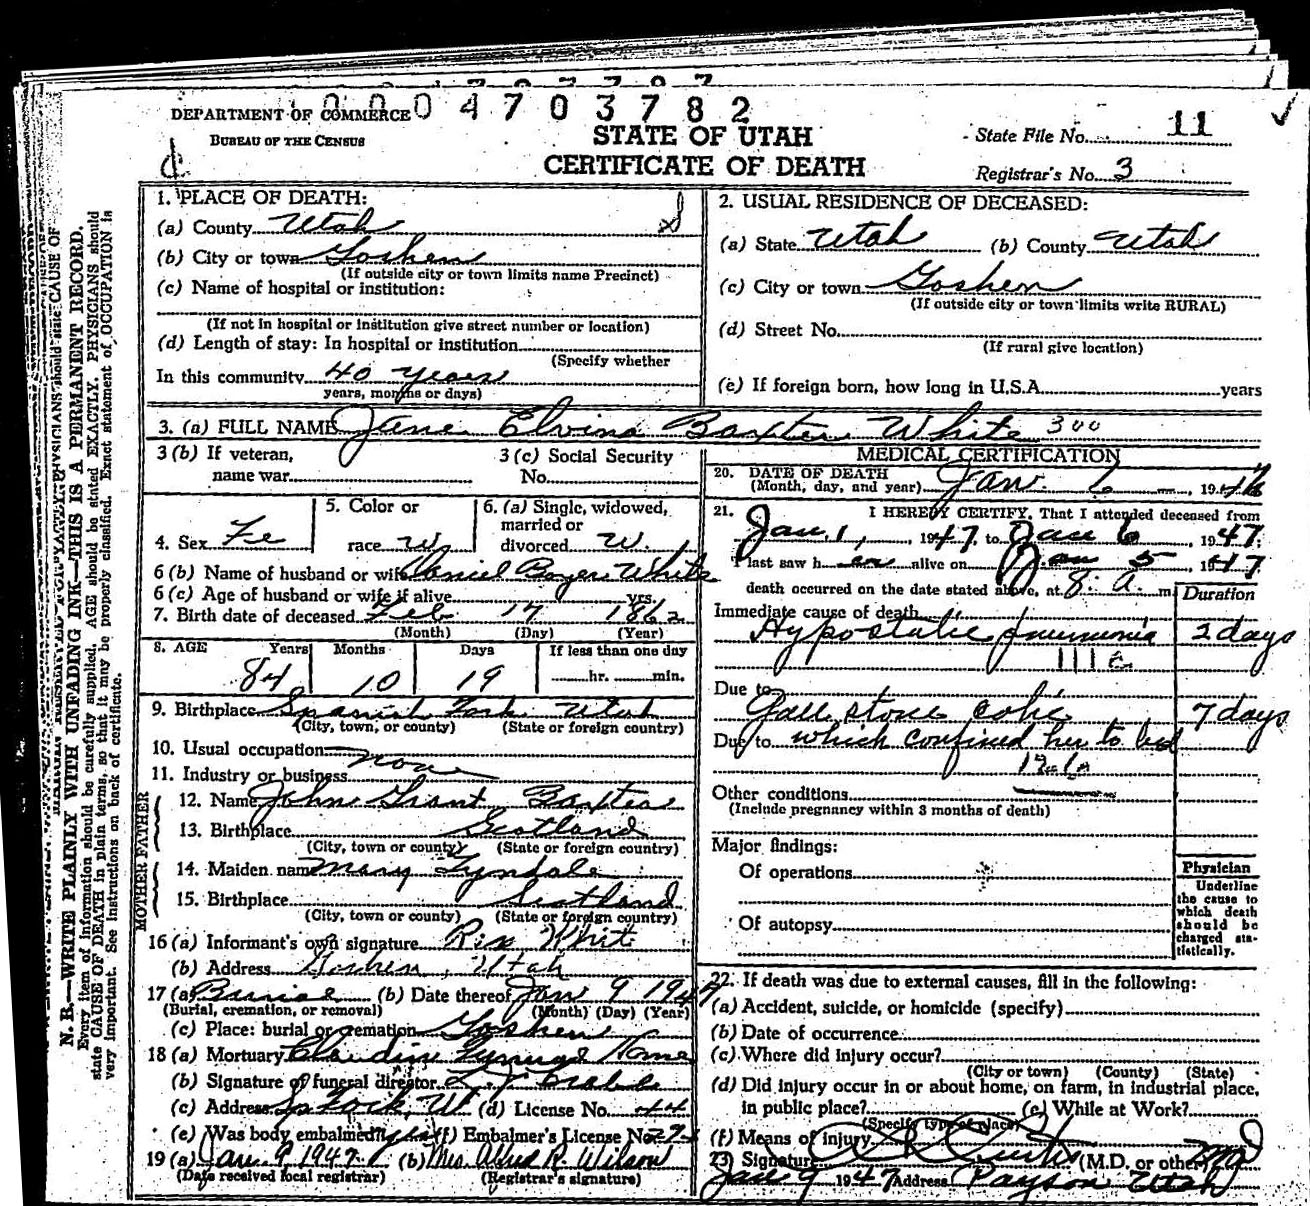 0004703782
DEPARTMENT OF COMMERCE
BUREAU OF THE CENSUS
STATE OF UTAH
CERTIFICATE OF DEATH
State File No. 11
Registrar's No. 3
N. B.—WRITE PLAINLY WITH UNFADING INK—THIS IS A PERMANENT RECORD.
Every item of information should be carefully supplied. AGE should be stated EXACTLY. PHYSICIANS should
state CAUSE OF DEATH in plain terms, so that it may be properly classified. Exact statement of OCCUPATION is
very important. See instructions on back of certificate.
1. PLACE OF DEATH:
(a) County Utah
(b) City or town Goshen
(If outside city or town limits name Precinct)
(c) Name of hospital or institution:
(If not in hospital or institution give street number or location)
(d) Length of stay: In hospital or institution
(Specify whether
In this community 40 years
years, months or days)
2. USUAL RESIDENCE OF DECEASED:
(a) State Utah (b) County Utah
(c) City or town Goshen
(If outside city or town limits write RURAL)
(d) Street No.
(If rural give location)
(e) If foreign born, how long in U.S.A. years
3. (a) FULL NAME Jane Elvina Baxter White 300
3 (b) If veteran, name war
3 (c) Social Security No.
4. Sex Fe
5. Color or race W
6. (a) Single, widowed, married or divorced W.
6 (b) Name of husband or wife Daniel Boyer White
6 (c) Age of husband or wife if alive yrs.
7. Birth date of deceased Feb 17 1862
(Month) (Day) (Year)
8. AGE Years Months Days If less than one day
84 10 19 hr. min.
9. Birthplace Spanish Fork Utah
(City, town, or county) (State or foreign country)
10. Usual occupation none
11. Industry or business
FATHER
12. Name John Grant Baxter
13. Birthplace Scotland
(City, town or county) (State or foreign country)
MOTHER
14. Maiden name Mary Tyndale
15. Birthplace Scotland
(City, town or county) (State or foreign country)
16 (a) Informant's own signature White
(b) Address Goshen, Utah
17 (a) Burial (b) Date thereof Jan 9 1947
(Burial, cremation, or removal) (Month) (Day) (Year)
(c) Place: burial or cremation Goshen
18 (a) Mortuary Claudin Funeral Home
(b) Signature of funeral director
(c) Address Sp Fork, Ut (d) License No. 44
(e) Was body embalmed? (f) Embalmer's License No.
19 (a) Jan 9 1947 (b) Mrs Alfred R. Wilson
(Date received local registrar) (Registrar's signature)
MEDICAL CERTIFICATION
20. DATE OF DEATH
(Month, day, and year) Jan. 6, 19
21. I HEREBY CERTIFY, That I attended deceased from
Jan 1, 1947, to Jan 6, 1947.
I last saw her alive on Jan 5 1947
death occurred on the date stated above, at 8: A. m.
Duration
Immediate cause of death
Hypostatic pneumonia 2 days
111 a
Due to
Gall stone colic 7 days
Due to which confined her to bed
Other conditions
(Include pregnancy within 3 months of death)
Major findings:
Of operations
Of autopsy
Physician
Underline
the cause to
which death
should be
charged sta-
tistically.
22. If death was due to external causes, fill in the following:
(a) Accident, suicide, or homicide (specify)
(b) Date of occurrence
(c) Where did injury occur?
(City or town) (County) (State)
(d) Did injury occur in or about home, on farm, in industrial place,
in public place? (e) While at Work?
(Specify type of place)
(f) Means of injury
23) Signature Curtis (M.D. or other) MD
Jan 9 1947 Address Payson Utah